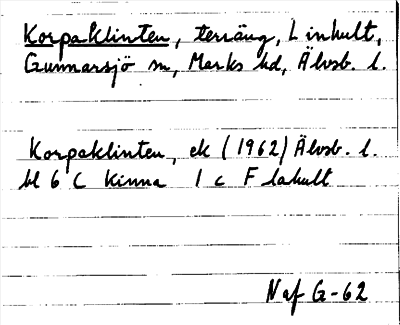 Korpaklinten, terräng, Linhult,
Gunnarsjö sn, Marks hd, Älvsb. l.
Korpaklinten, ek (1962) Älvsb. l.
bl 6 C Kinna 1 c Flahult
Naf G-62